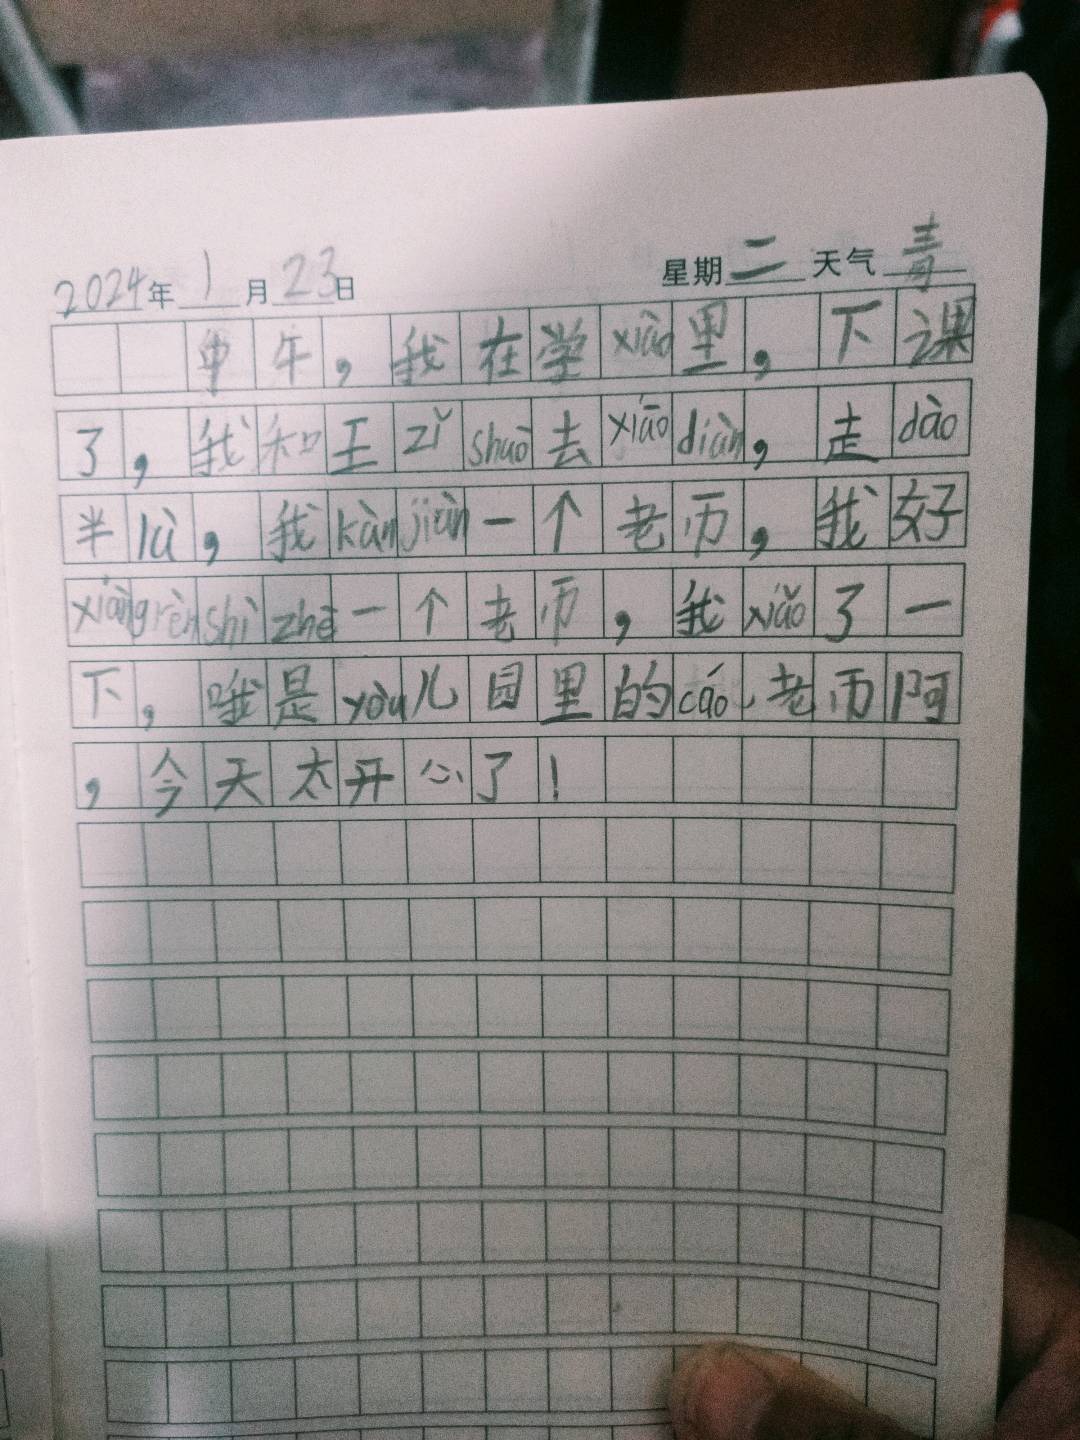 2024年1月23日 星期二天气青
中午，我在学xiào里，下课
了，我和王zǐshuò去xiāodiàn，走dào
半lù，我kànjiàn一个老币，我好
xiàngrènshizhè一个老币，我xiǎo了一
下，哦是yòu儿园里的cáo老币阿
，今天太开心了！